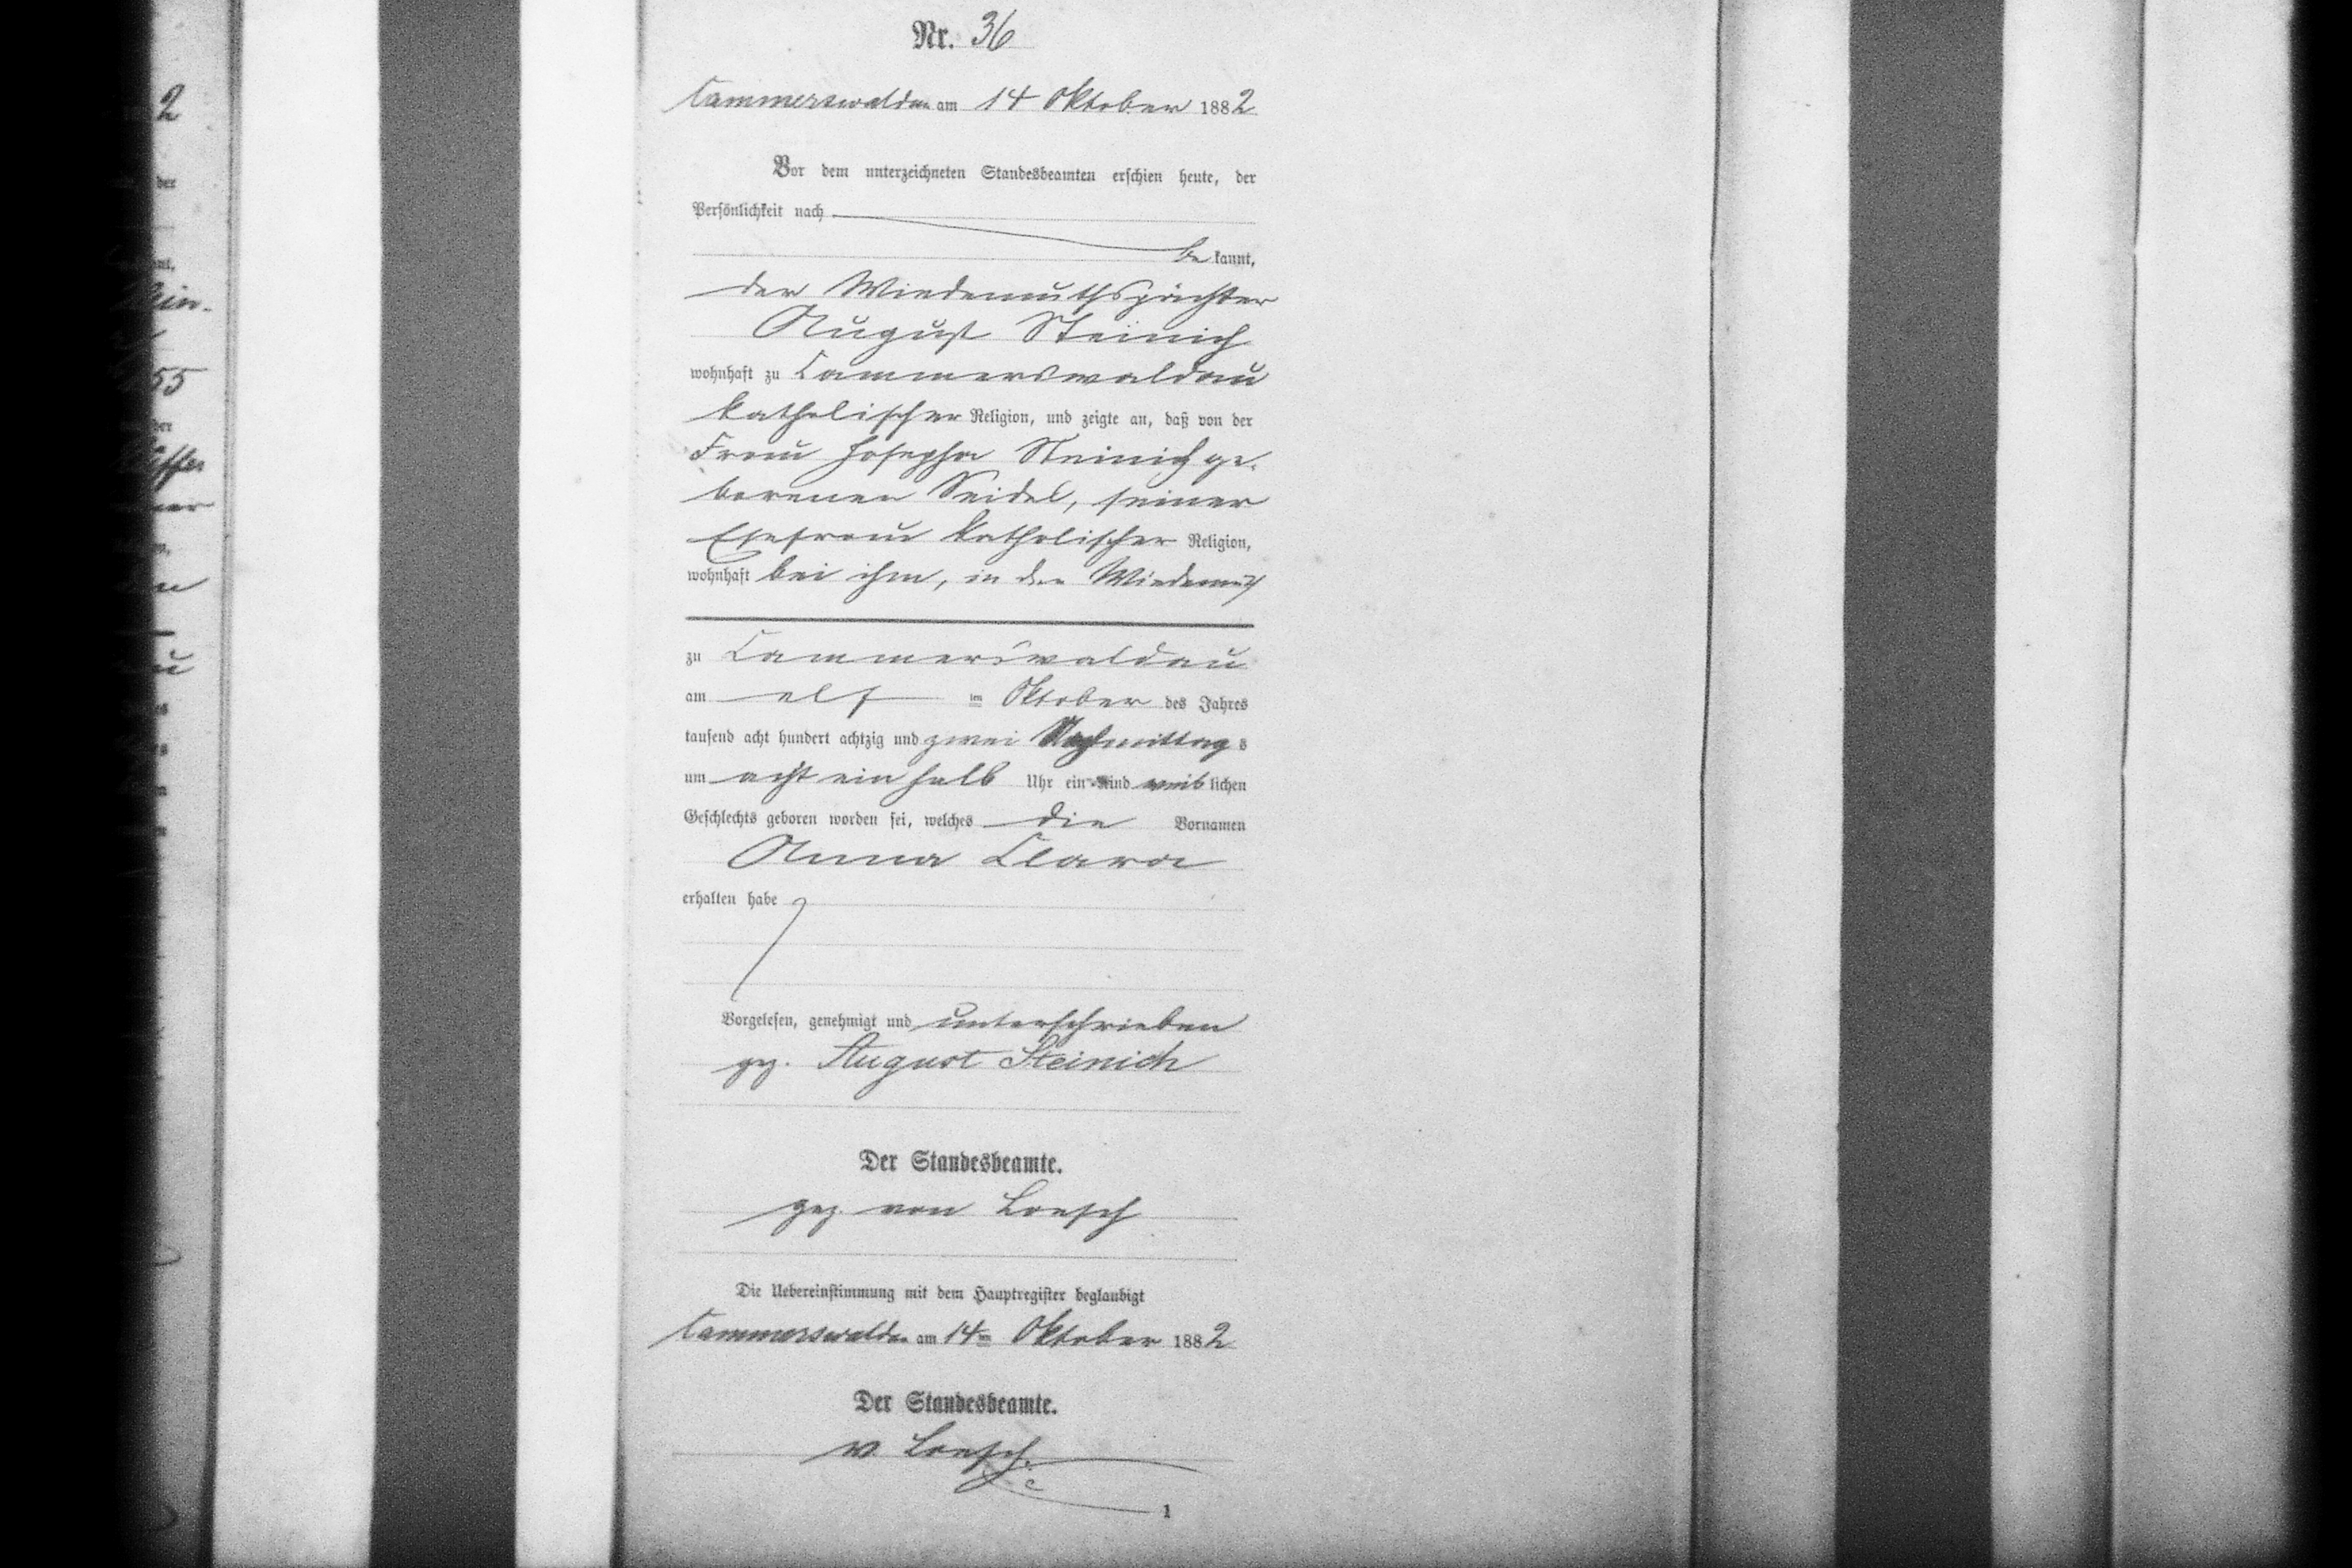 Nr. 36
Cammerswaldau am 14 Oktober 1882
Vor dem unterzeichneten Standesbeamten erschien heute, der
Persönlichkeit nach
be kannt,
der Wiedemuthspächter
August Steinich
wohnhaft zu Cammerswaldau
katholischer Religion, und zeigte an, daß von der
Frau Josepha Steinich ge-
borenen Seidel, seiner
Ehefrau katholischer Religion,
wohnhaft bei ihm, in der Wiedemuth
zu Cammerswaldau
am elf ten Oktober des Jahres
tausend acht hundert achtzig und zwei Nachmittag s
um acht ein halb Uhr ein Kind weib lichen
Geschlechts geboren worden sei, welches die Vornamen
Anna Clara
erhalten habe
Vorgelesen, genehmigt und unterschrieben
gez. August Steinich
Der Standesbeamte.
gez. von Loesch
Die Uebereinstimmung mit dem Hauptregister beglaubigt
Cammerswaldau am 14ten Oktober 1882
Der Standesbeamte.
v. Loesch.
1